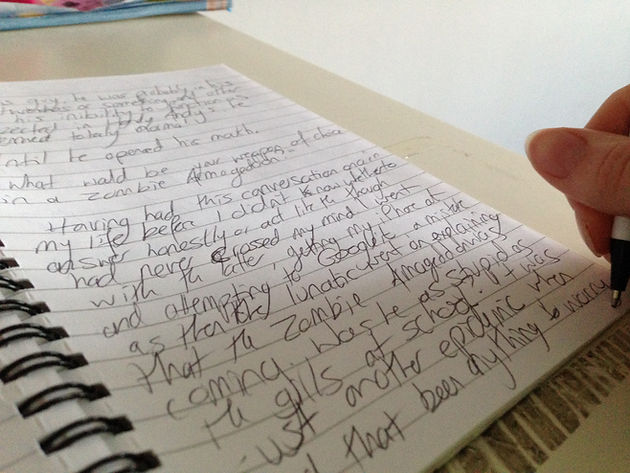 guy he was probably in his
or something
his inability to function
totally drama!
until he opened his mouth.
What would be your weapon of choice
in a zombie Armageddon?
Having had this conversation once in
my life before I didn't know whether to
answer honestly or act like the though
had never crossed my mind. I went
with the latter, getting my iPhone out
and attempting to Google it, a mistake
as then the lunatic went on explaining
that the Zombie Amageddon was
coming. was he as stupid as
the girls at school. It was
just another epidemic, when
had that been anything to worry